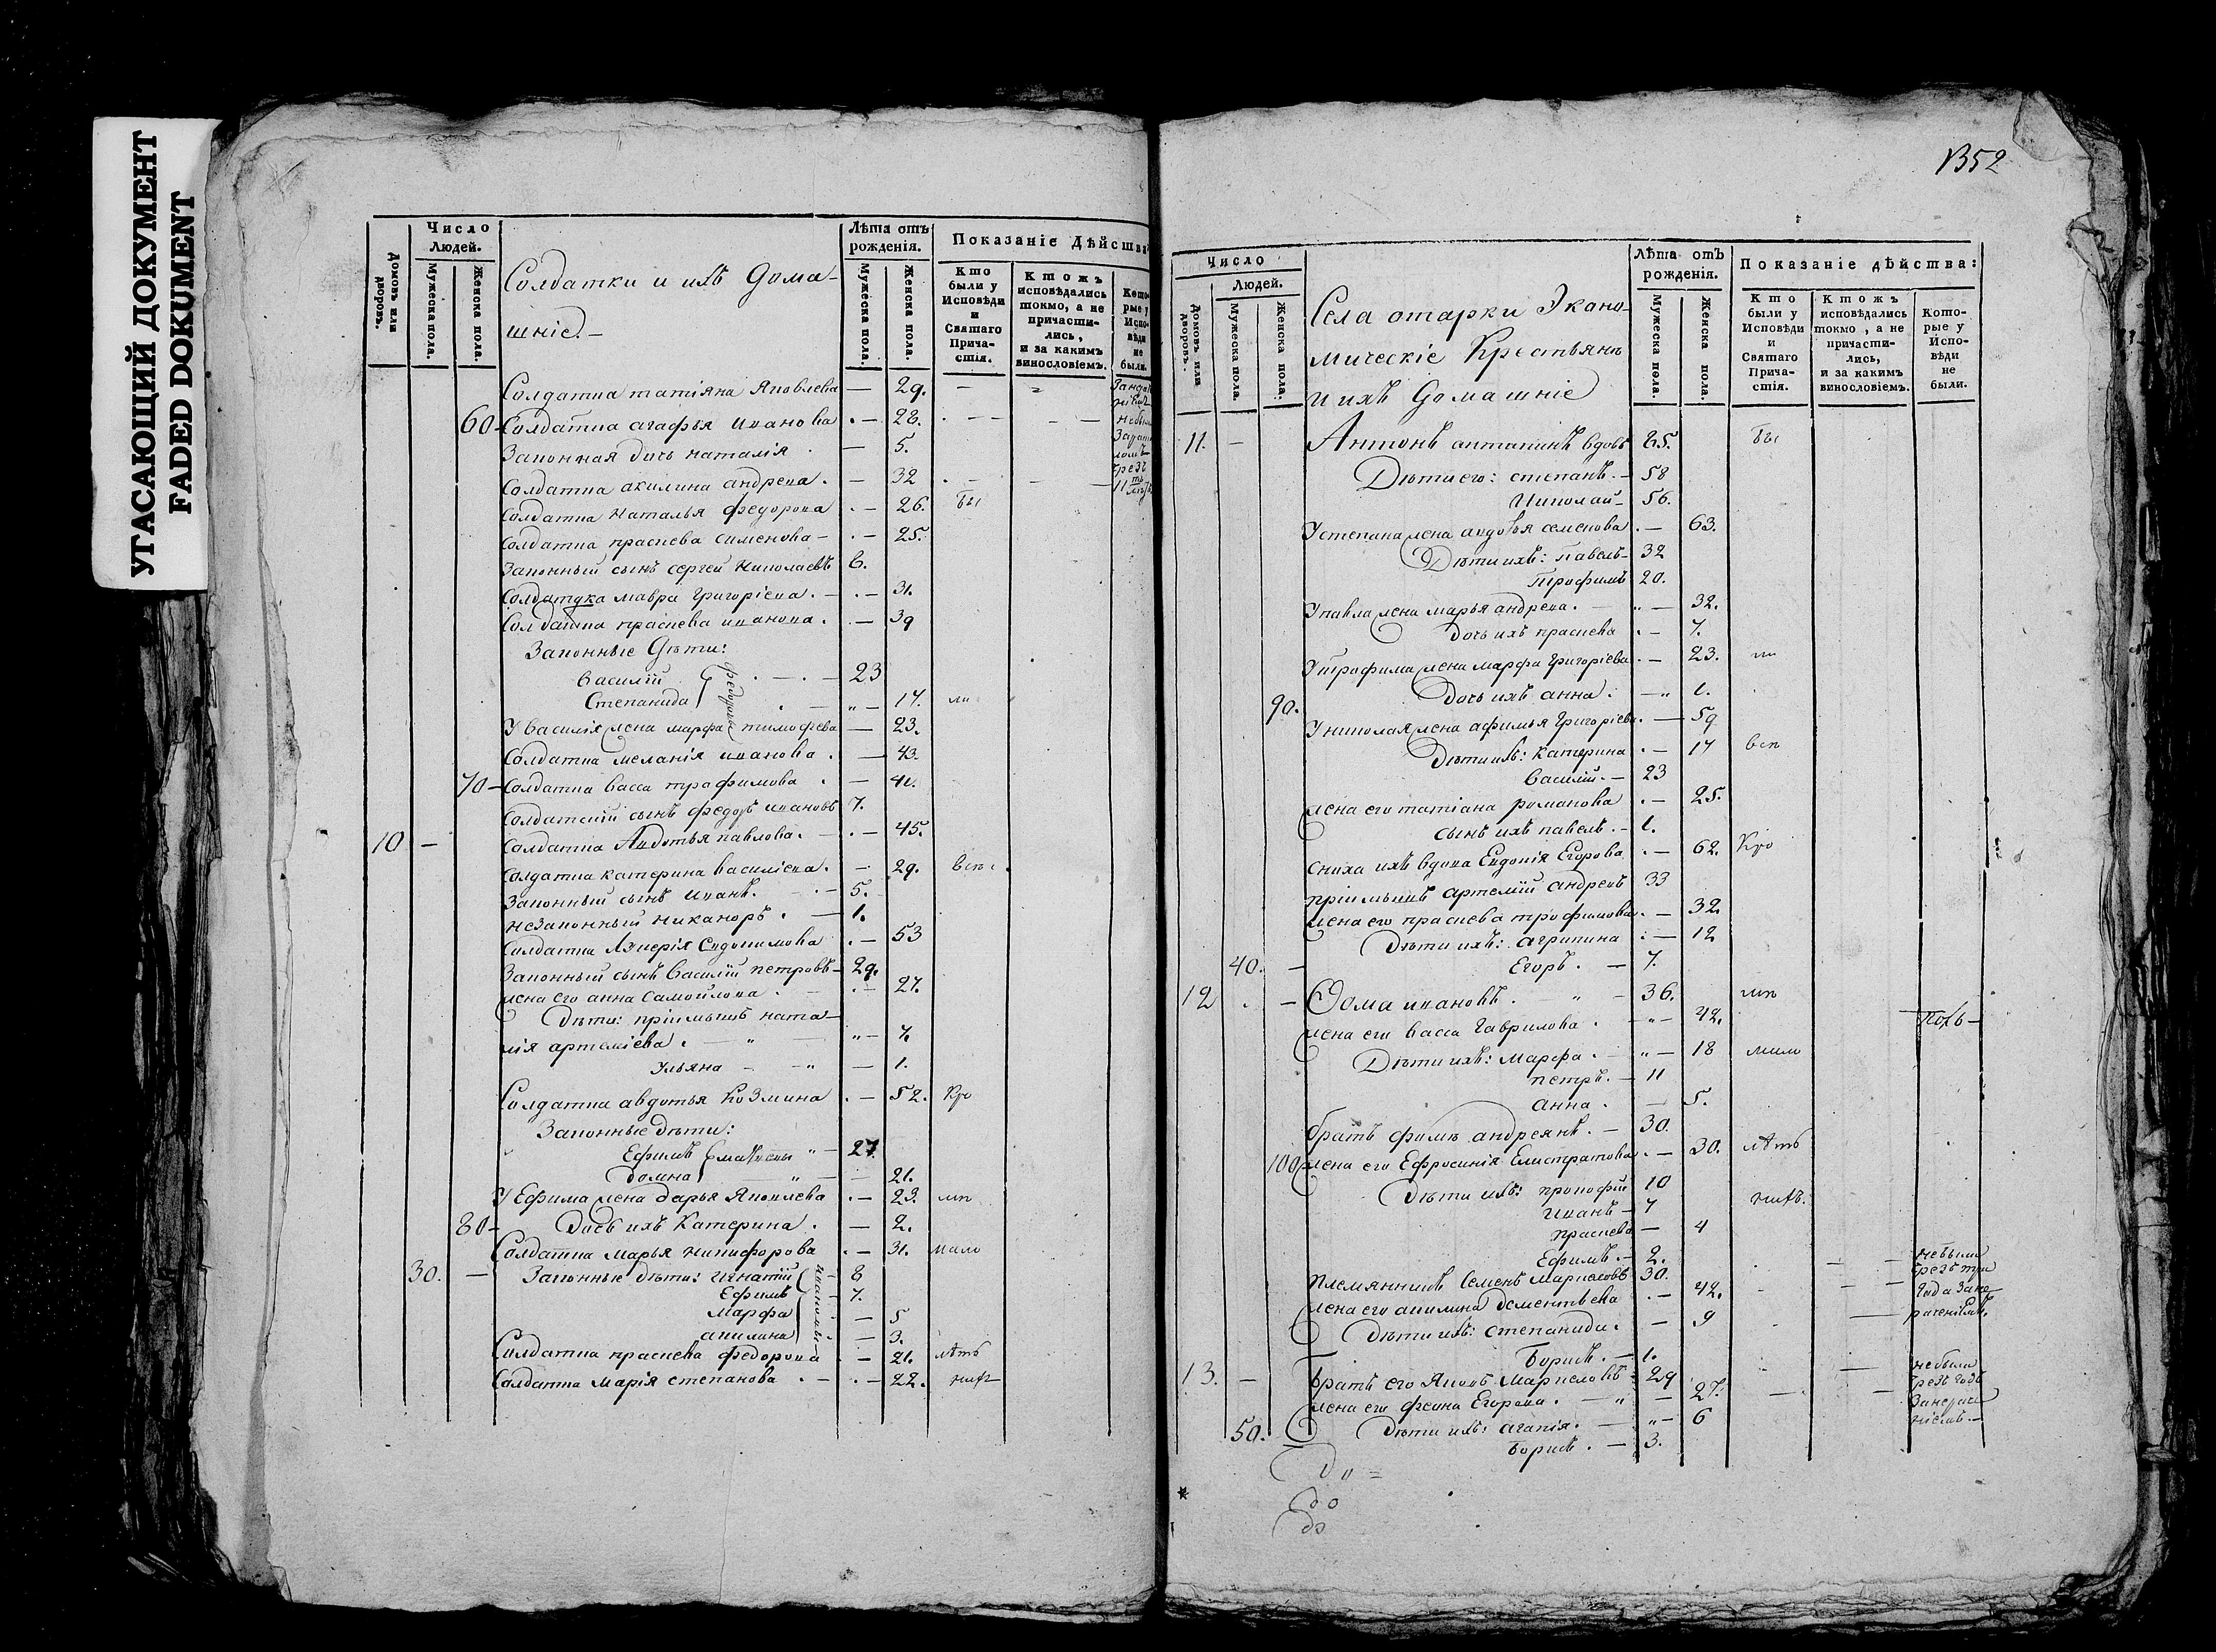 УТАСАЮЩИЙ ДОКУМЕНТ
FADED DOKUMENT
Число Людей.
Домовъ или дворовъ.
Мужеска пола.
Женска пола.
Солдатки и ихъ Дома-
шніе.-
Лѣта отъ рожденія.
Мужеска пола.
Женска пола.
Показаніе Дѣйства
Кто были у Исповѣди и Святаго Прича-стія.
Ктожъ исповѣдались токмо, а не причасти-лись, и за какимъ винословіемъ.
Кото-рые у Испо-вѣди не были.
Солдатка татіяна Яковлева — 29.
60 - Солдатка агафья иванова . — 28.
Законная дочь наталія . — 5.
Солдатка акилина андрева . — 32
Солдатка Наталья федорова . — 26. бы
Солдатка праскева симеонова — . — 25.
Законный сынъ сергей Николаевъ 6.
Солдатдка мавра Григоріева . — . — 31.
Солдатка праскева иванова . — 39
Законные Дѣти:
Василій 23
Степанида федоровы „ — 17. ли
У василія жена марфа тимофева — 23.
Солдатка меланія иванова . — 43.
70 - Солдатка васса трофимова . — 41.
Солдатскій сынъ федоръ ивановъ 7.
10 — Солдатка Авдотья павлова . — . — 45.
Солдатка катерина василіева . — 29. всѣ
Законный сынъ иванъ . — 5.
незаконный никаноръ . — 1.
Солдатка Лукерія Евдокимова . — 53
Законный сынъ василій петровъ — 29.
жена его анна самойлова . — . — 27.
Дѣти: пріимышъ ната-
лія артеміева . — „ — „ — 7.
Ульяна — „ — 1.
Солдатка авдотья Козмина . — 52. Кро
Законные дѣти:
Ефимъ „ — 27.
домна „ — 21.
У Ефима жена дарья Яковлева . — 23. мѣ
80 - Дочь ихъ Катерина . — 2.
Солдатка марья никифорова . — 31. мало
30. — Законные дѣти: игнатій — 8
Ефимъ — 7.
марфа — 5
акилина ивановы — 3.
Солдатка праскева федорова . — 21. лѣтъ
Солдатка марія степанова . — . — 22. нихъ
1352
Число Людей.
Домовъ или дворовъ.
Мужеска пола.
Женска пола.
Села отарки Экано-
мическіе Крестьянъ
и ихъ Домашніе
Лѣта отъ рожденія.
Мужеска пола.
Женска пола.
Показаніе дѣйства:
Кто были у Исповѣди и Святаго Прича-стія.
Ктожъ исповѣдались токмо, а не причасти-лись, и за какимъ винословіемъ.
Кото-рые у Испо-вѣди не были.
11. — Антонъ антипинъ вдовъ 85. бы
Дѣти его: степанъ . — 58
Николай — 56.
У степана жена авдотья семенова . — 63.
Дѣти ихъ: павелъ — 32
трофимъ 20.
У павла жена марья андрева . — „ — 32.
дочь ихъ праскева . — 7.
У трофима жена марфа григоріева . — 23. ли
90. дочь ихъ анна . — „ 1.
У николая жена афимья Григоріева . — 59
Дѣти ихъ: катерина . — 17 всѣ
Василій . — 23
жена его татіана романова . — 25.
сынъ ихъ павелъ . — 1.
сноха ихъ вдова Евдокія Егорова . — 62. Кро
пріимышъ артемій андреевъ 33
жена его праскева трофимова . — 32.
Дѣти ихъ: агрипина . — 12
40. — Егоръ . — 7.
12 . — Фома ивановъ . „ — 36. мѣ
жена его васса Гаврилова . — „ — 42.
Дѣти ихъ: марфа . — „ — 18 мало
петръ . — 11
анна . — 5.
братъ фомы андреянъ . — 30.
100 жена его Ефросинія Елистратова . — 30. лѣтъ
Дѣти ихъ: прокофій 10
иванъ — 7 нихъ.
праскева — 4
Ефимъ . — 2.
племянникъ Семенъ Марковъ 30. небыли
жена его акилина дементьева . — 42.
Дѣти ихъ: степанида . — 9
Борисъ . — 1.
13. — братъ его Яковъ 29 небыли
жена его феона Егорова . — „ — 27.
50. Дѣти ихъ: агапія . — „ — 6
Борисъ . — 3.
До
До